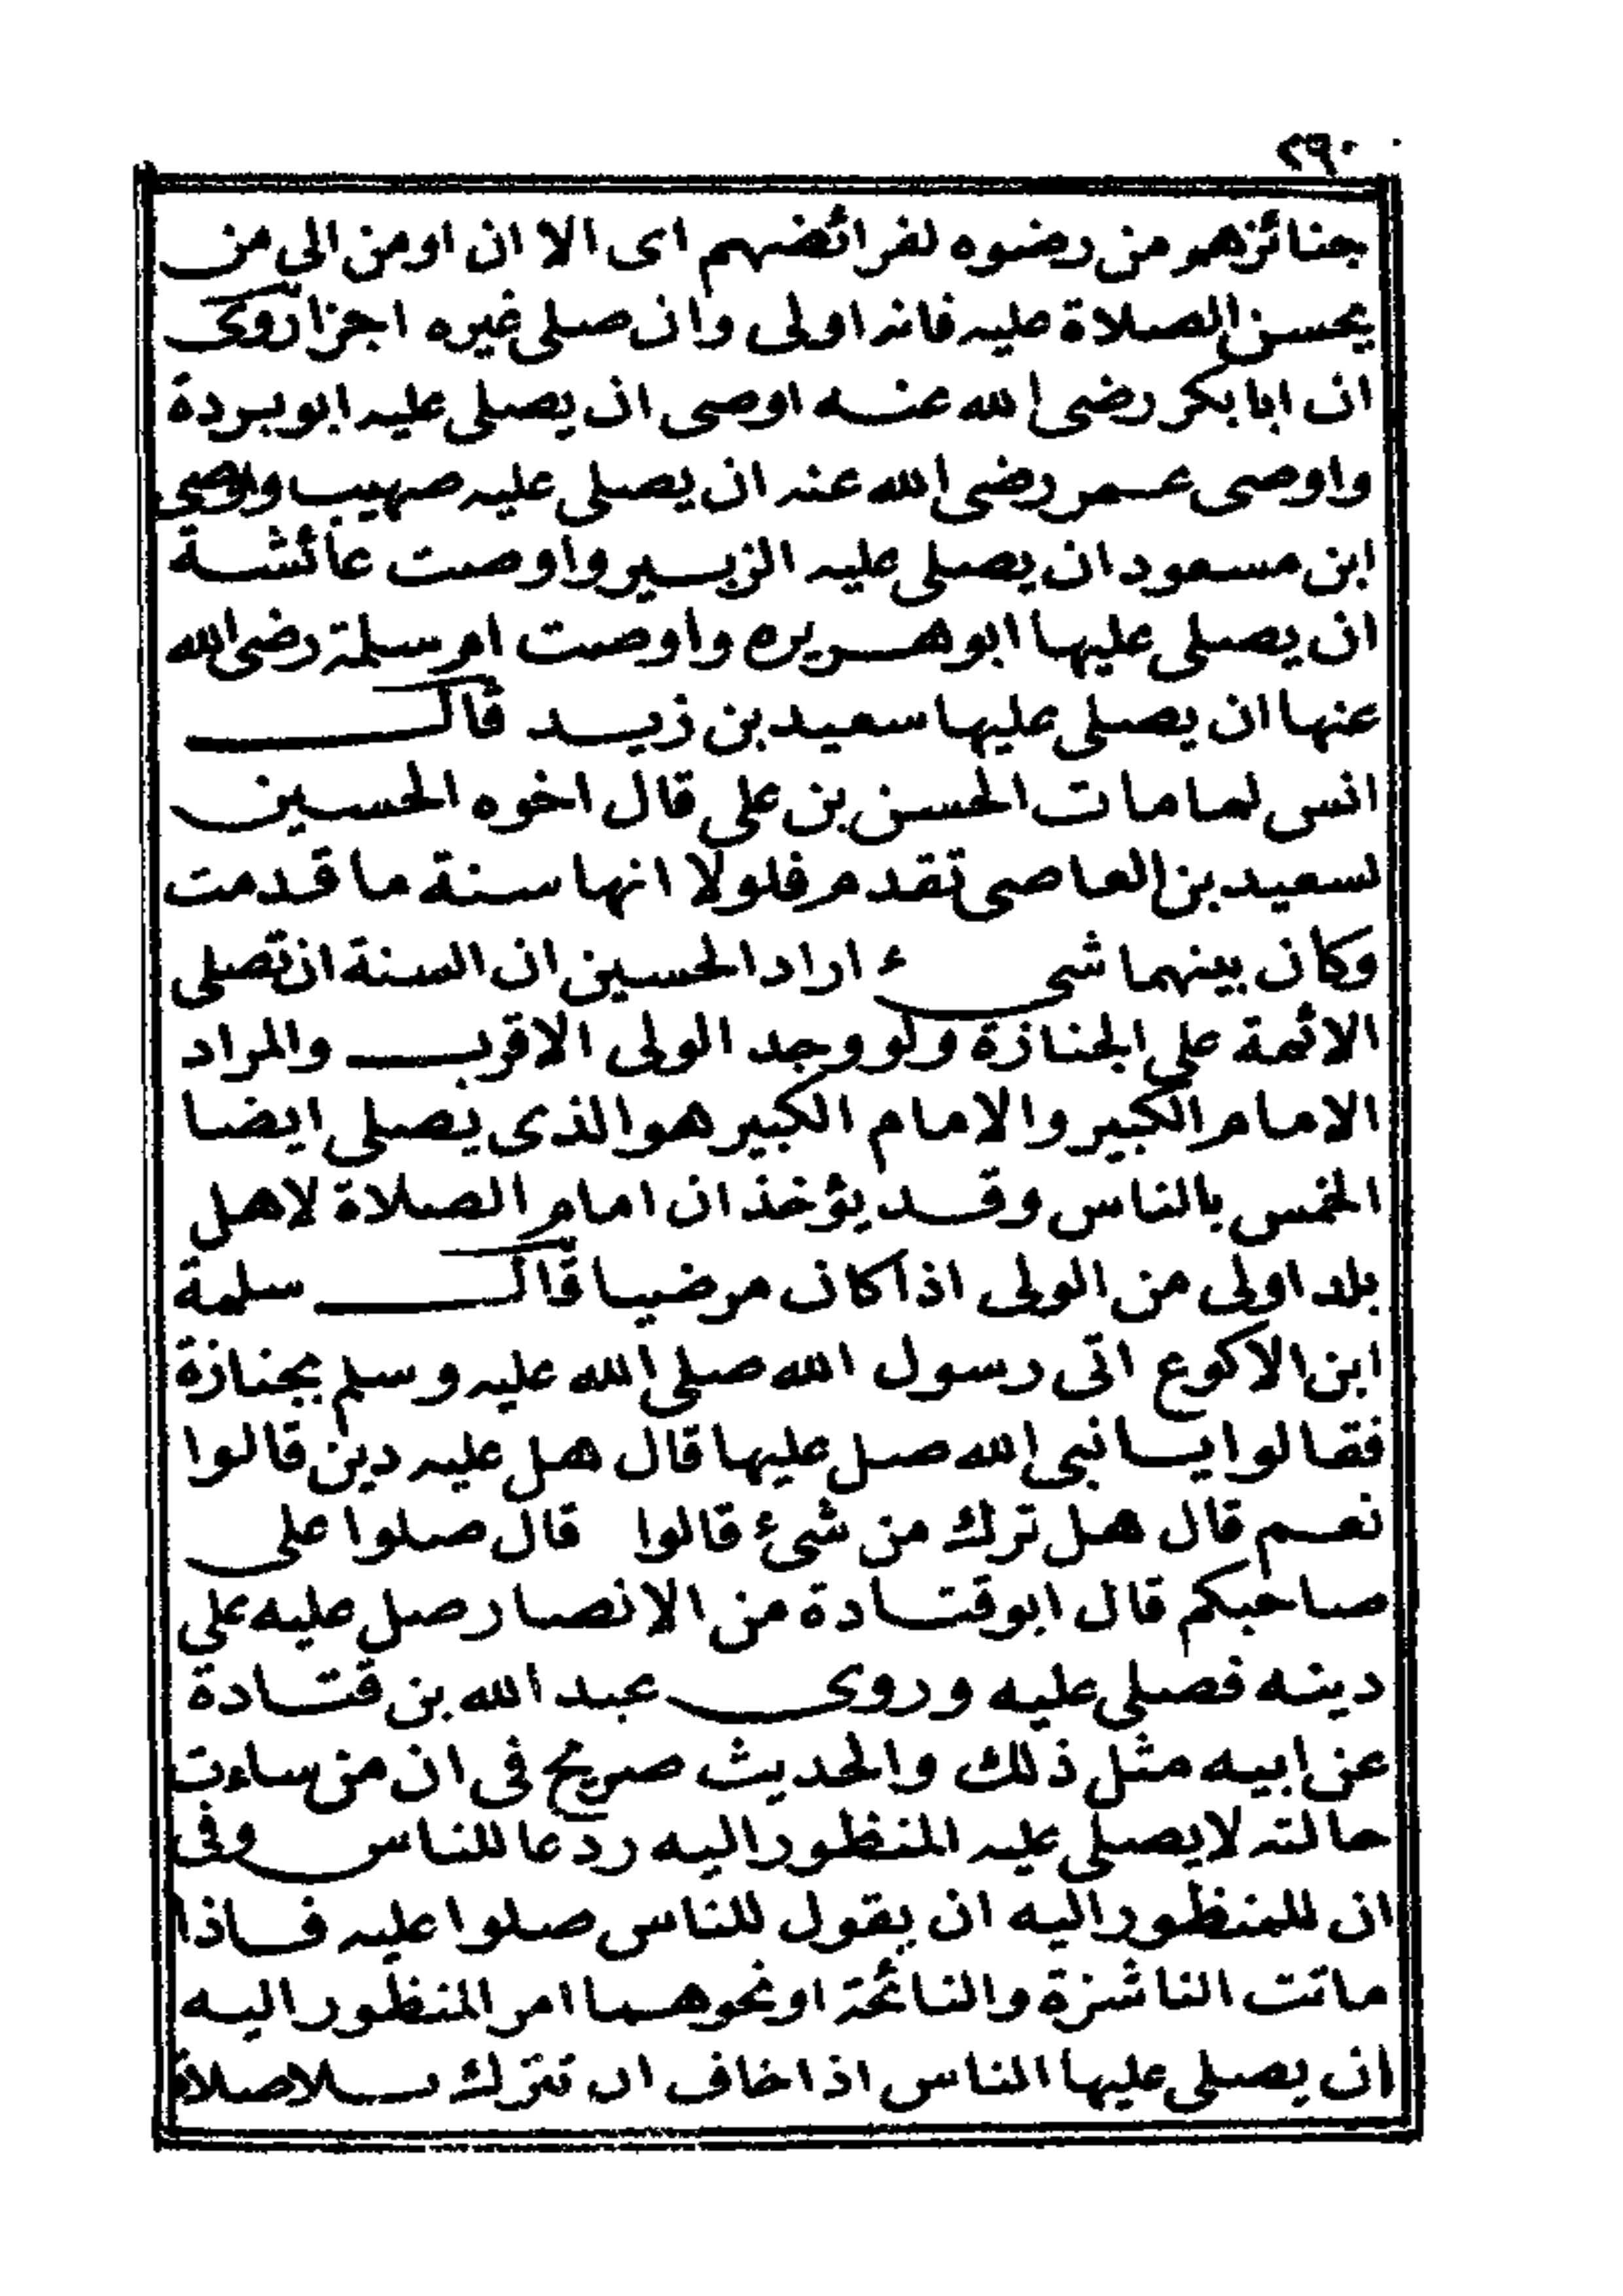 ٢٩٠
جنائزهم من رضوه لفرائضهم اى الا ان اومن الى من
يحسن الصلاة عليه فانه اولى وان صلى غيره اجزا روى
ان ابا بكر رضى الله عنه اوصى ان يصلى عليه ابو بردة
واوصى عمر رضى الله عنه ان يصلى عليه صهيب واوصى
ابن مسعود ان يصلى عليه الزبير واوصت عائشة
ان يصلى عليها ابو هريره واوصت ام سلمة رضى الله
عنها ان يصلى عليها سعيد بن زيد قال
انس لما مات الحسن بن على قال اخوه الحسين
لسعيد بن العاصى تقدم فلولا انها سنة ما قدمت
وكان بينهما شىء اراد الحسين ان السنة ان تصلى
الائمة على الجنازة ولو وجد الولى الاقرب والمراد
الامام الكبير والامام الكبير هو الذى يصلى ايضا
الخمس بالناس وقد يؤخذ ان امام الصلاة لاهل
بلد اولى من الولى اذا كان مرضيا قال سلمة
ابن الاكوع اتى رسول الله صلى الله عليه وسلم بجنازة
فقالوا يا نبى الله صل عليها قال هل عليه دين قالوا
نعم قال هل ترك من شئ قالوا قال صلوا على
صاحبكم قال ابو قتادة من الانصار صل عليه على
دينه فصلى عليه وروى عبد الله بن قتادة
عن ابيه مثل ذلك والحديث صريح فى ان من ساءت
حالته لا يصلى عليه المنظور اليه ردعا للناس وفى
ان للمنظور اليه ان يقول للناس صلوا عليه فاذا
ماتت الناشزة والنائحة او نحوهما امر المنظور اليه
ان يصلى عليها الناس اذا خاف ان تترك بلا صلاة